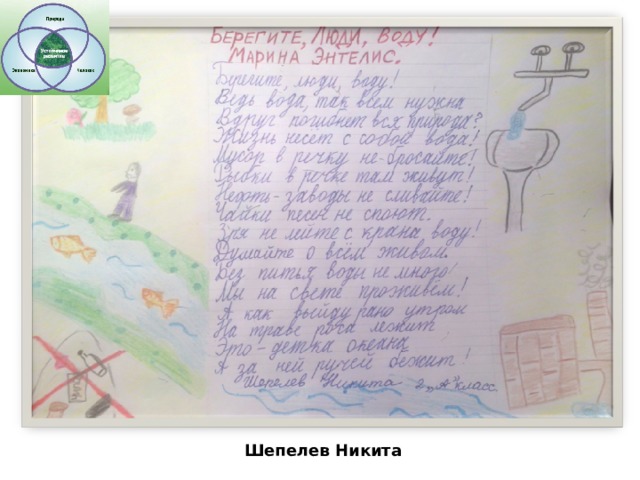 Природа
Устойчивое
развитие
Экономика
Человек
БЕРЕГИТЕ, ЛЮДИ, ВОДУ!
МАРИНА ЭНТЕЛИС.
Берегите, люди, воду!
Ведь вода, так всем нужна
Вдруг погибнет вся природа?
Жизнь несёт с собой вода!
Мусор в речку не-бросайте!
Рыбки в речке там живут!
Нефть-заводы не сливайте!
Чайки песен не споют.
Зря не лейте с крана воду!
Думайте о всём живом.
Без питья, воды не много
Мы на свете проживём!
А как выйду рано утром
На траве роса лежит
Это-детка океана
А за ней ручей бежит!
Шепелев Никита 2 "А" класс.
Шепелев Никита